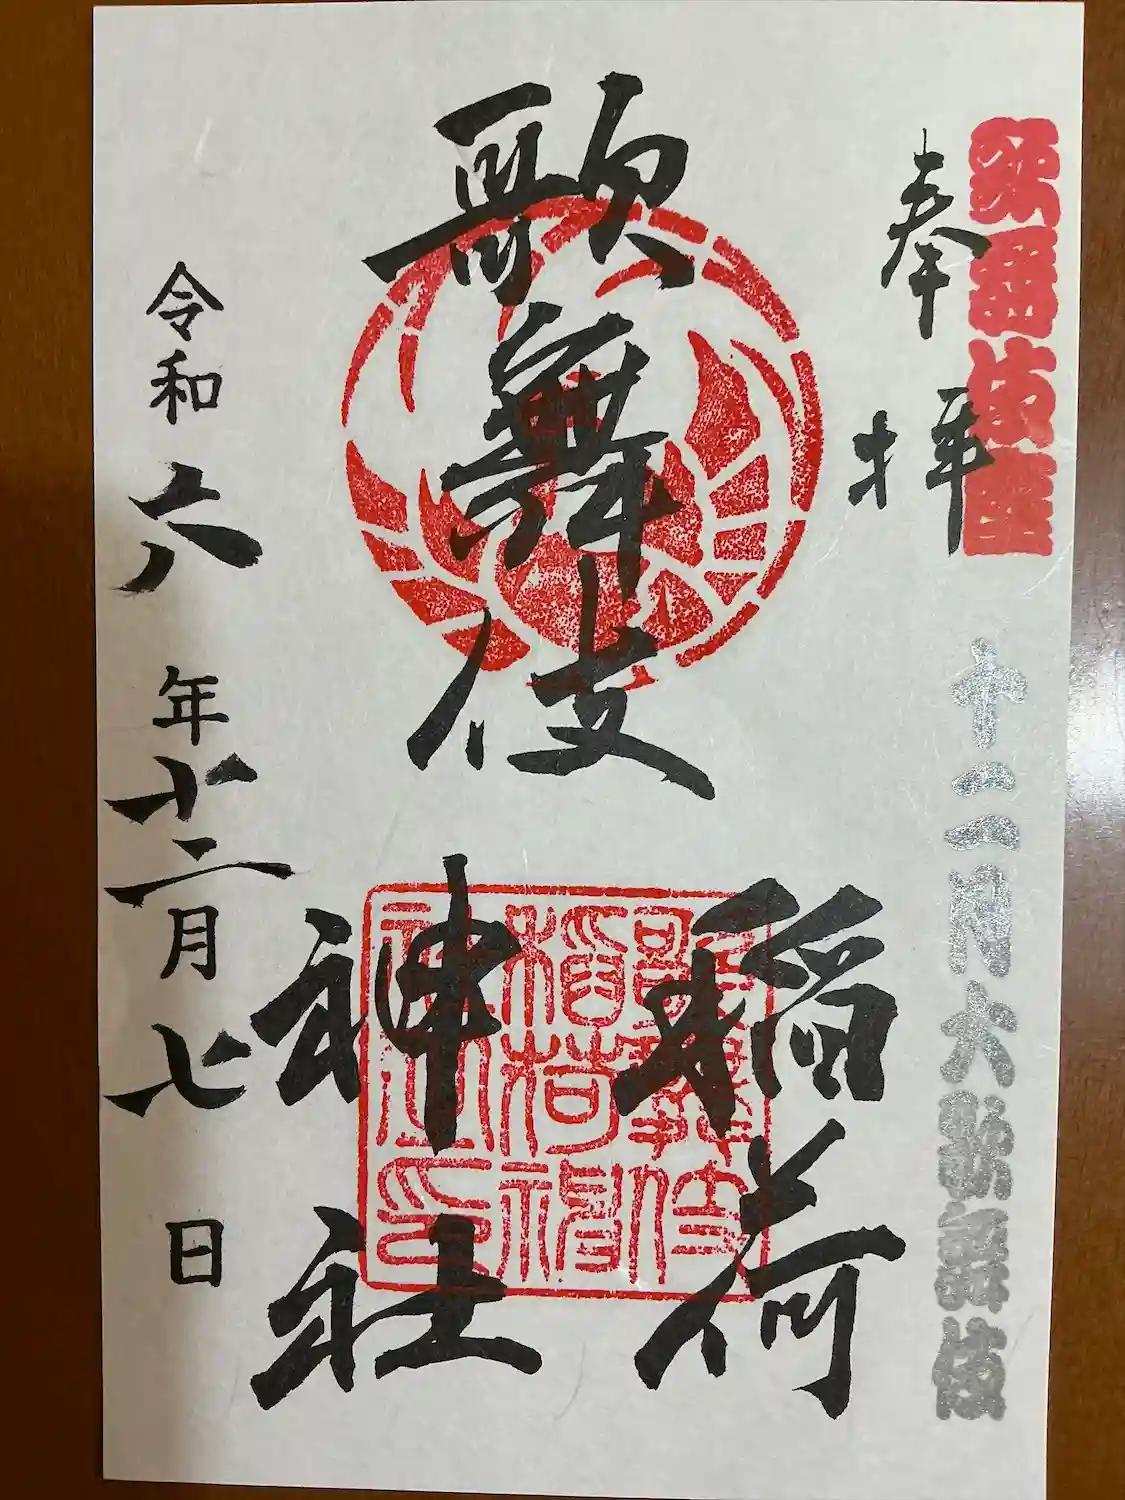 歌舞伎座
奉拝
十二月大歌舞伎
歌舞伎
稲荷
神社
歌舞伎
稲荷神
社之印
令和六年十二月七日